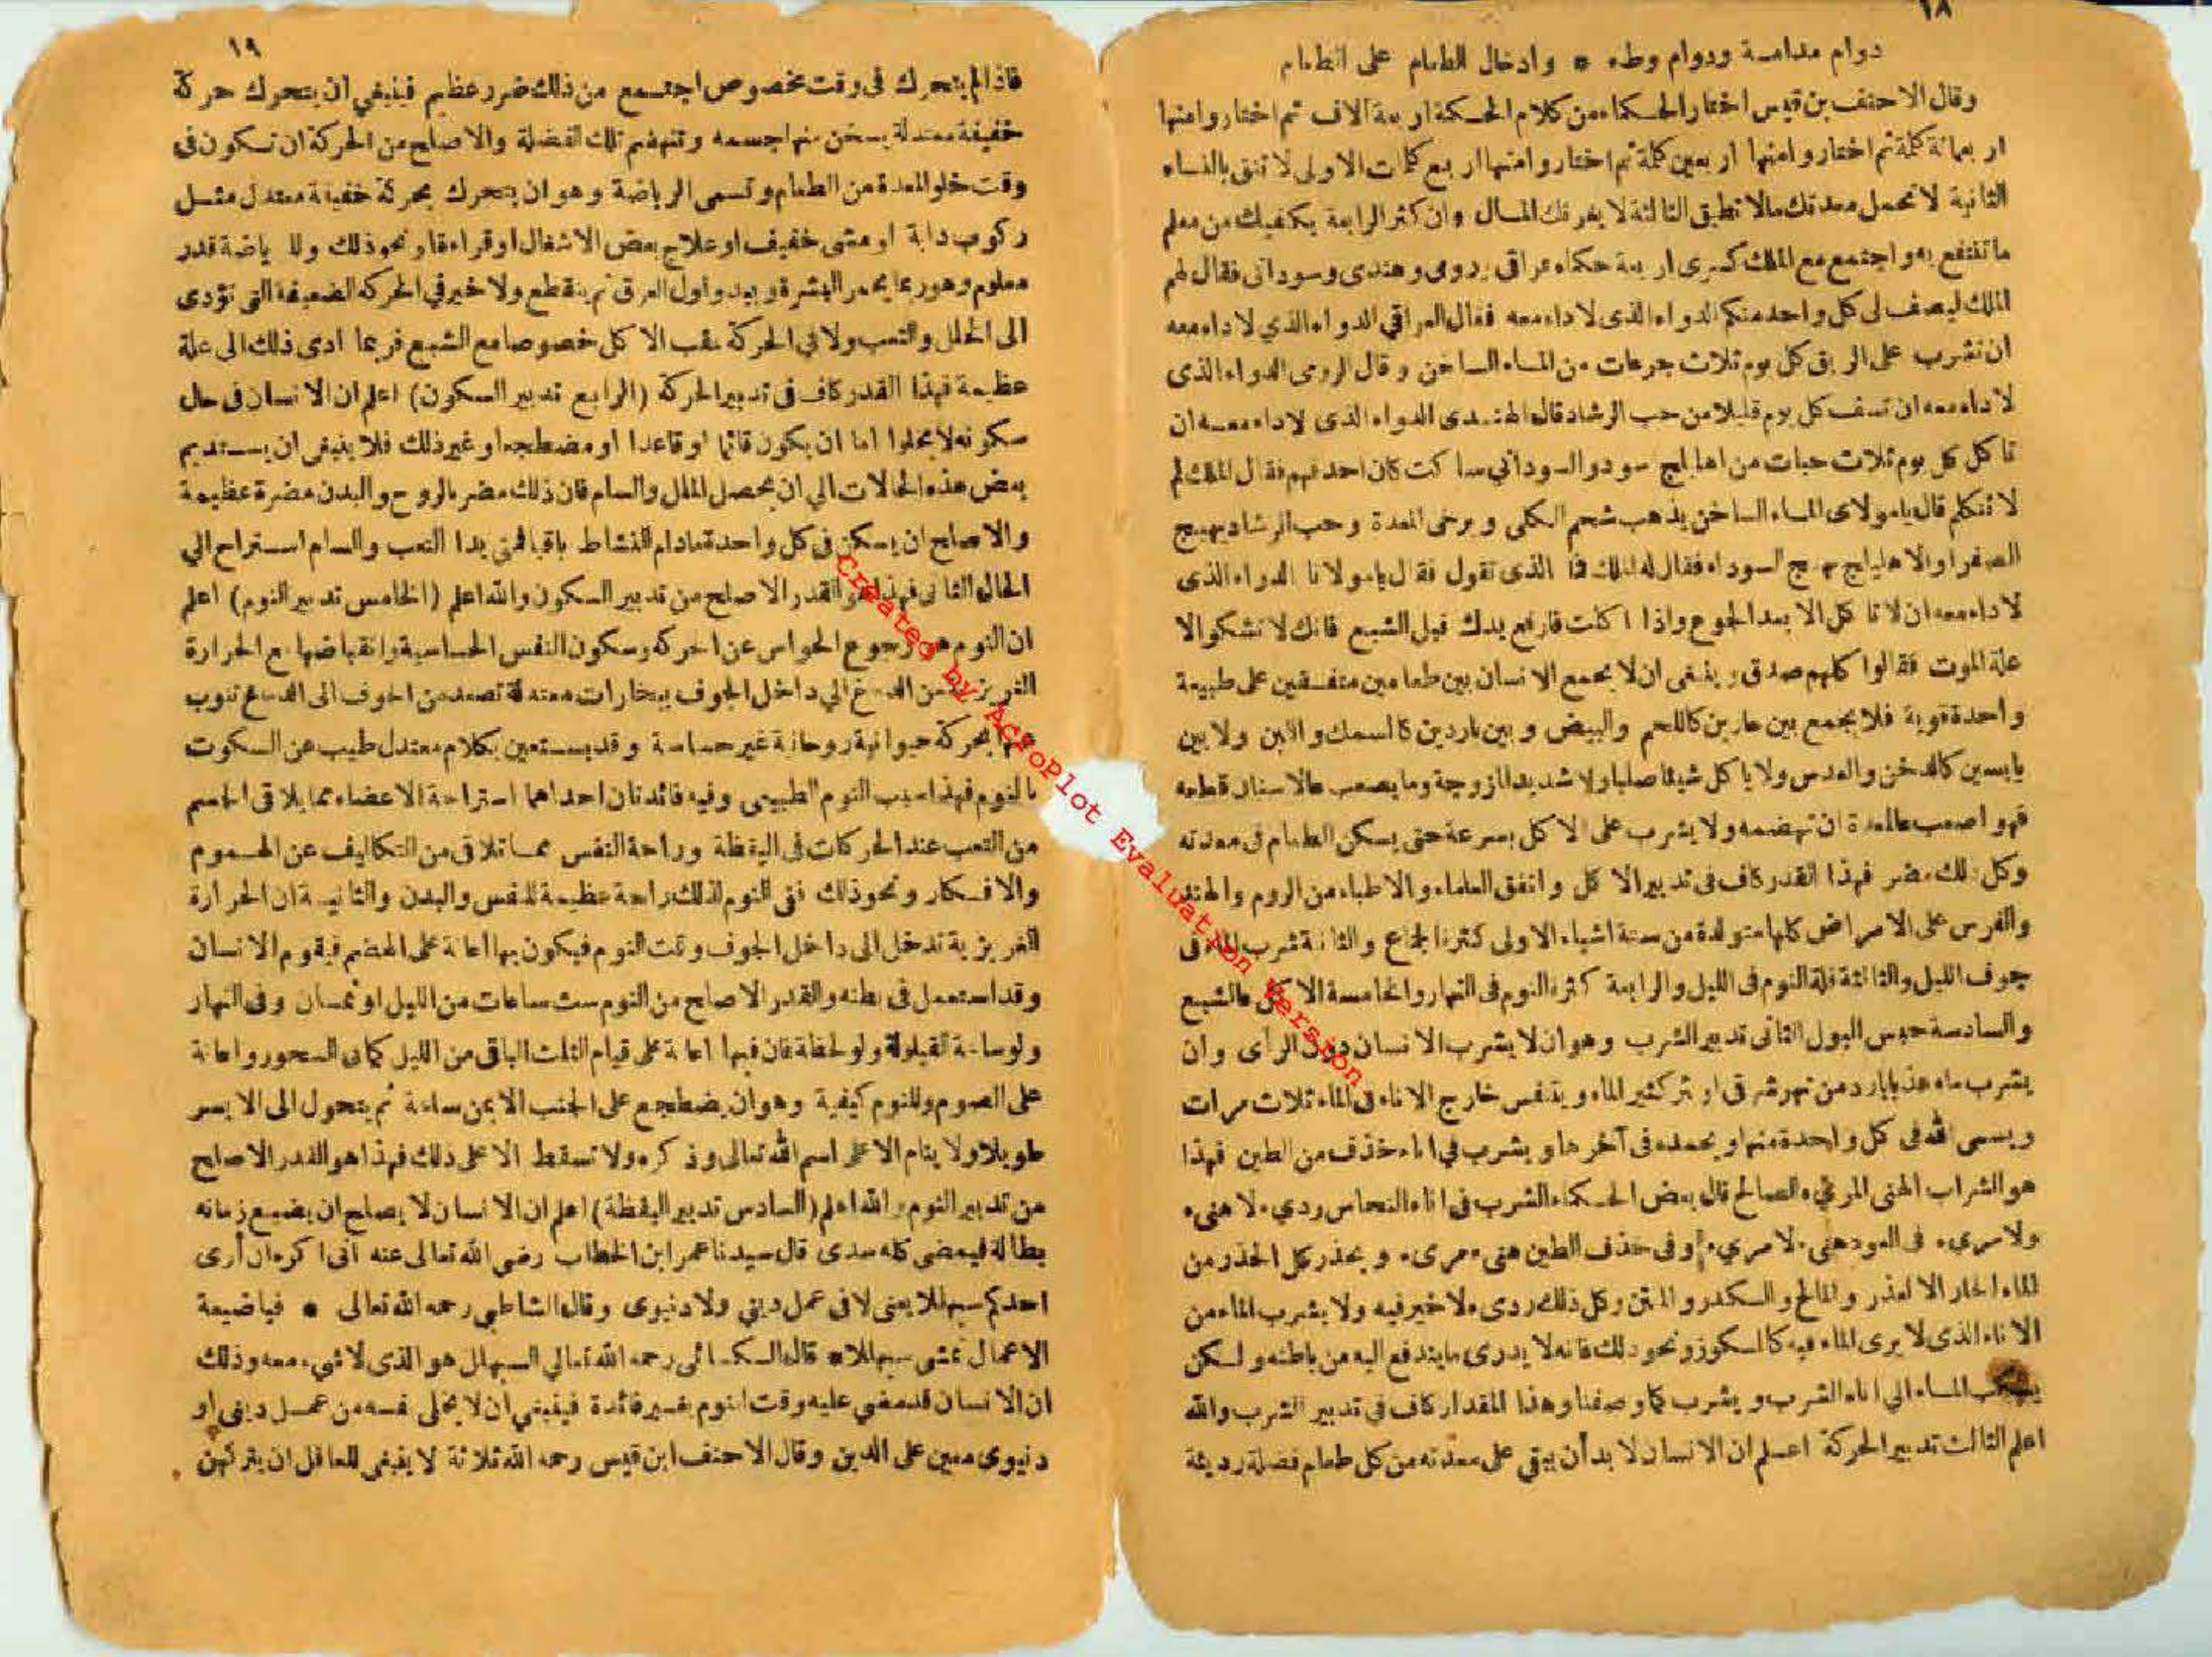 ١٨
دوام مدامة ودوام وطء * وادخال الطعام على الطعام
وقال الاحنف بن قيس اختار الحكماء من كلام الحكمة اربعة آلاف ثم اختاروا منها
اربعمائة كلمة ثم اختاروا منها اربعين كلمة ثم اختاروا منها اربع كلمات الاولى لا تثق بالنساء
الثانية لا تحمل معدتك مالا تطيق الثالثة لا يغرنك المال وان كثر الرابعة يكفيك من معلم
ما تنتفع به واجتمع مع الملك كسرى اربعة حكماء عراقي رومى وهندى وسودانى فقال لهم
الملك ليصف لى كل واحد منكم الدواء الذى لا داء معه فقال العراقي الدواء الذي لا داء معه
ان تشرب على الريق كل يوم ثلاث جرعات من الماء الساخن وقال الرومى الدواء الذى
لا داء معه ان تسف كل يوم قليلا من حب الرشاد قال الهندى الدواء الذى لا داء معه ان
تاكل كل يوم ثلاث حبات من اهليلج سود والسودانى ساكت كان احدهم فقال الملك لم
لا تتكلم قال يا مولاى الماء الساخن يذهب شحم الكلى ويرخى المعدة وحب الرشاد يهيج
الصفراء والاهليلج يهيج السوداء فقال له الملك فما الذى تقول فقال يا مولانا الدواء الذى
لا داء معه ان لا تاكل الا بعد الجوع واذا اكلت فارفع يدك قبل الشبع فانك لا تشكو الا
علة الموت فقالوا كلهم صدق وينبغى ان لا يجمع الانسان بين طعامين متفقين على طبيعة
واحدة قوية فلا يجمع بين حارين كاللحم والبيض وبين باردين كالسمك واللبن ولا بين
يابسين كالدخن والعدس ولا ياكل شيئا صلبا ولا شديد اللزوجة وما يصعب بالاسنان قطعه
فهو اصعب بالمعدة ان تهضمه ولا يشرب على الاكل بسرعة حتى يسكن الطعام فى معدته
وكل ذلك مضر فهذا القدر كاف فى تدبير الاكل واتفق العلماء والاطباء من الروم والهند
والفرس على الامراض كلها متولدة من ستة اشياء الاولى كثرة الجماع والثانية شرب الماء فى
جوف الليل والثالثة قلة النوم فى الليل والرابعة كثرة النوم فى النهار والخامسة الاكل بالشبع
والسادسة حبس البول الثانى تدبير الشرب وهو ان لا يشرب الانسان دون الرأى وان
يشرب ماء عذبا بارد من نهر شرقى او بئر كثير الماء ويتنفس خارج الاناء فى الماء ثلاث مرات
ويسمى الله فى كل واحدة منها ويحمده فى آخرها ويشرب في اناء خذف من الطين فهذا
هو الشراب الهنى المرئ الصالح قال بعض الحكماء الشرب فى اناء النحاس ردي لا هنىء
ولا مريء فى العود هنى لا مريء وفى خذف الطين هنىء مرىء ويحذر كل الحذر من
الماء الحار الا لعذر والمالح والكدر والمنتن وكل ذلك ردى لا خير فيه ولا يشرب الماء من
الاناء الذى لا يرى الماء فيه كالكوز ونحو ذلك فانه لا يدرى ما يندفع اليه من باطنه ولكن
يسكب الماء الي اناء الشرب ويشرب كما وصفنا وهذا المقدار كاف فى تدبير الشرب والله
اعلم الثالث تدبير الحركة اعلم ان الانسان لا بد أن يبقي على معدته من كل طعام فضلة رديئة
١٩
فاذا لم يتحرك فى وقت مخصوص اجتمع من ذلك ضرر عظيم فينبغي ان يتحرك حركة
خفيفة معتدلة يسخن منها جسمه وتنهضم تلك الفضلة والاصلح من الحركة ان تكون فى
وقت خلو المعدة من الطعام وتسمى الرياضة وهو ان يتحرك بحركة خفيفة معتدل مثل
ركوب دابة او مشى خفيف او علاج بعض الاشغال او قراءة او نحو ذلك وللرياضة قدر
معلوم وهو ربما يحمر البشرة ويبدو اول العرق ثم ينقطع ولا خير في الحركه الضعيفة التى تؤدى
الى الخلل والتعب ولا في الحركة عقب الاكل خصوصا مع الشبع فربما ادى ذلك الى علة
عظيمة فهذا القدر كاف فى تدبير الحركة (الرابع تدبير السكون) اعلم ان الانسان فى حال
سكونه لا يخلوا اما ان يكون قائما او قاعدا او مضطجعا او غير ذلك فلا ينبغى ان يستديم
بعض هذه الحالات الي ان يحصل الملل والسام فان ذلك مضر بالروح والبدن مضرة عظيمة
والاصلح ان يسكن فى كل واحدة مادام النشاط باقيا فمتى بدا التعب والسام استراح الي
الحال الثانى فهذا هو القدر الاصلح من تدبير السكون والله اعلم (الخامس تدبير النوم) اعلم
ان النوم هو رجوع الحواس عن الحركه وسكون النفس الحساسية وانقباضها مع الحرارة
الغريزية من الدماغ الي داخل الجوف ببخارات معتدلة تصعد من الجوف الى الدماغ تنوب
عنها بحركة حيوانية روحانية غير حساسة وقد يستعين بكلام معتدل طيب عن السكوت
بالنوم فهذا سبب النوم الطبيعى وفيه فائدتان احداهما استراحة الاعضاء مما يلاقى الجسم
من التعب عند الحركات فى اليقظة وراحة النفس مما تلاقى من التكاليف عن الهموم
والافكار ونحو ذلك ففى النوم لذلك راحة عظيمة للنفس والبدن والثانية ان الحرارة
الغريزية تدخل الى داخل الجوف وقت النوم فيكون بها اعانة على الهضم فيقوم الانسان
وقد استعمل فى بطنه والقدر الاصلح من النوم ست ساعات من الليل او ثمان وفى النهار
ولو ساعة القيلولة ولو لحظة فان فيها اعانة على قيام الثلث الباقى من الليل كما فى السحور واعانة
على الصوم وللنوم كيفية وهو أن يضطجع على الجنب الايمن ساعة ثم يتحول الى الايسر
طويلا ولا ينام الا على اسم الله تعالى وذكره ولا تسقط الا على ذلك فهذا هو القدر الاصلح
من تدبير النوم والله اعلم (السادس تدبير اليقظة) اعلم ان الانسان لا يصلح ان يضيع زمانه
بطالة فيمضى كله سدى قال سيدنا عمر ابن الخطاب رضى الله تعالى عنه انى اكره ان أرى
احدكم سبهللا يعنى لا فى عمل دينى ولا دنيوى وقال الشاطبي رحمه الله تعالى * فيا ضيعة
الاعمال تمشى سبهللا * قال الكسائى رحمه الله تعالي السبهلل هو الذى لا شىء معه وذلك
ان الانسان قد مضي عليه وقت النوم بغير فائدة فينبغي أن لا يخلى نفسه من عمل دينى او
دنيوى معين على الدين وقال الاحنف ابن قيس رحمه الله ثلاثة لا ينبغى للعاقل ان يتركهن
Created by AcroPlot Evaluation Version.